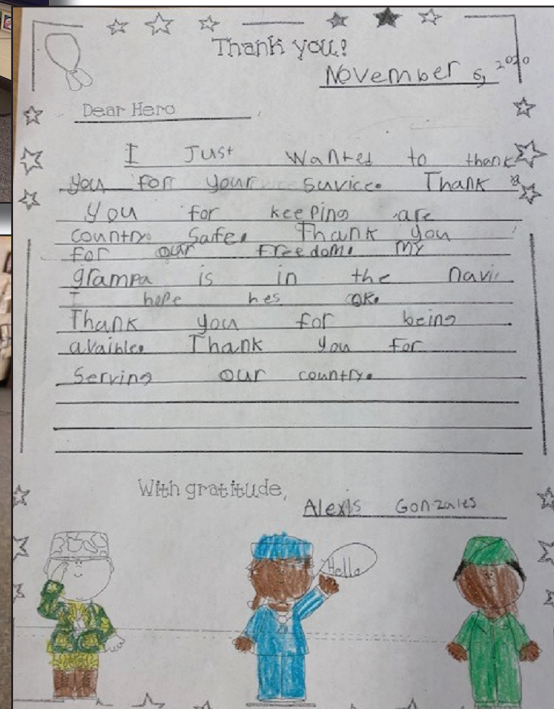 Thank you!
November 5, 2020
Dear Hero
I Just wanted to thank
you for your suvice. Thank
you for keeping are
country safe. Thank you
for our Freedom. My
grampa is in the navi
I hope hes ok.
Thank you for being
avaible. Thank you for
serving our country.
With gratitude,
Alexis Gonzales
Hello